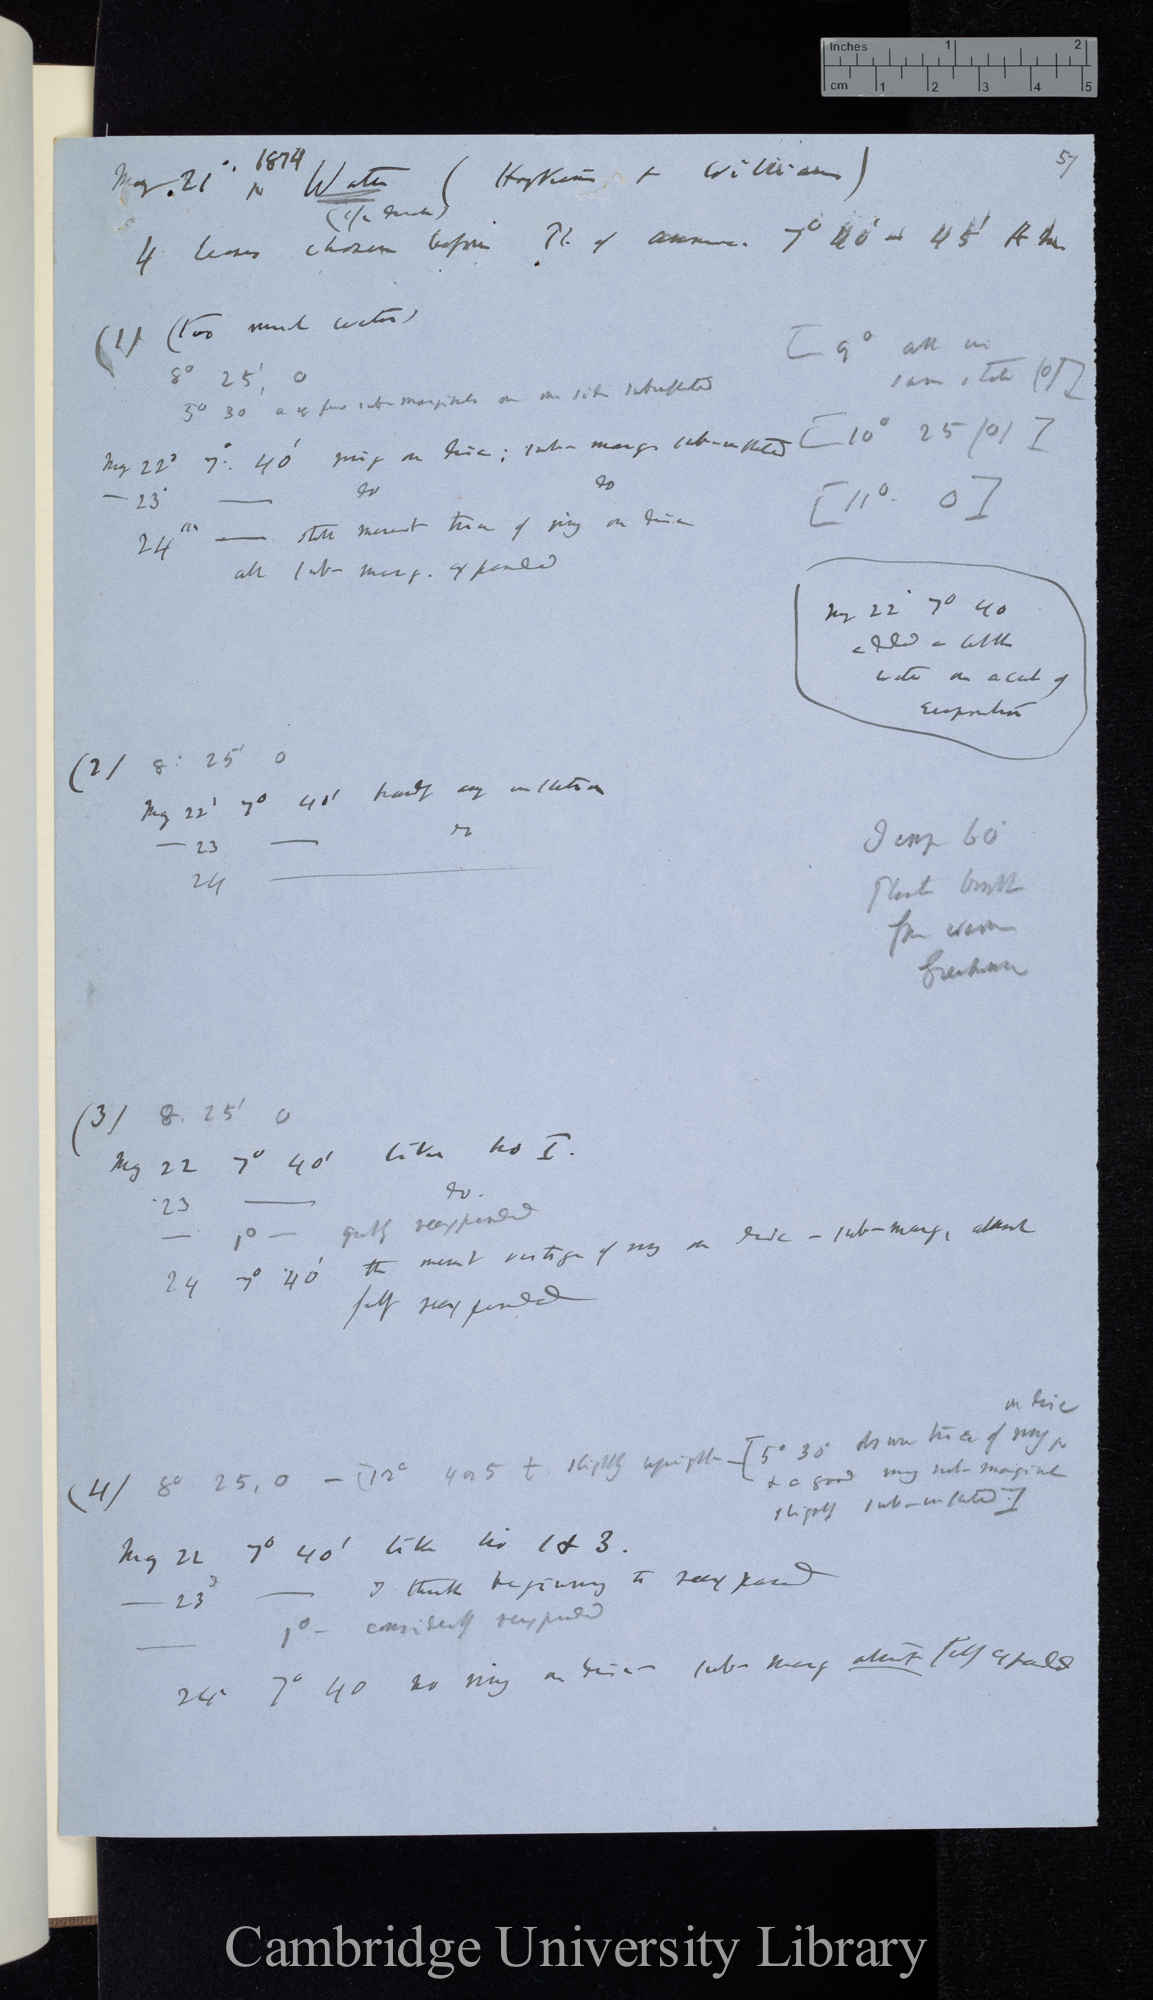 Inches 1 2
cm 1 2 3 4 5
57
May. 21° 1874 Water (Hopkins & Williams)
(1/2 drach)
4 leaves chosen before Ph. of ammon. 7° 40' – 45' A.M.
(1) (too much water)
8° 25', 0
5° 30' a very few sub-marginals on one side subinflected
May 22° 7° 40' ring on disc; sub-marg. sub-inflected
— 23° — do do
24th — still merest trace of ring on disc
all sub-marg. expanded
[9° all in
same state (0)]
[10° 25 (0)]
[11° 0]
May 22° 7° 40
added a little
water on account of
evaporation
(2) 8° 25' 0
May 22° 7° 40' hardly any inflection
— 23 — do
24 —
Temp 60°
Plant brought
from warm
Greenhouse
(3) 8. 25' 0
May 22 7° 40' like No I.
23 — do.
— 1° — greatly reexpanded
24 7° 40' the merest vestige of ring on disc – sub-marg, almost
fully reexpanded
(4) 8° 25, 0 — [12° 4 or 5 t slightly upright — [5° 30' shows trace of ring on disc
& a good many sub-marginals
slightly sub-inflected]
May 22 7° 40' like No 1 & 3.
— 23 — I think beginning to reexpand
— 1° — considerably reexpanded
24 7° 40 no ring on disc – sub-marg almost fully expanded
Cambridge University Library